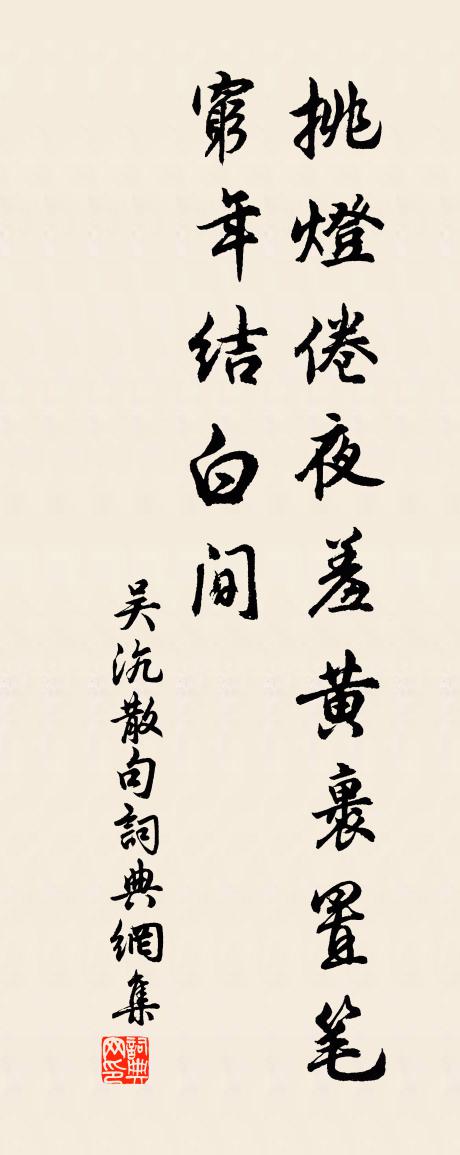 挑燈倦夜羞黃裹置笔
窮年結白間
吴沆散句詞典網集
詞典网印